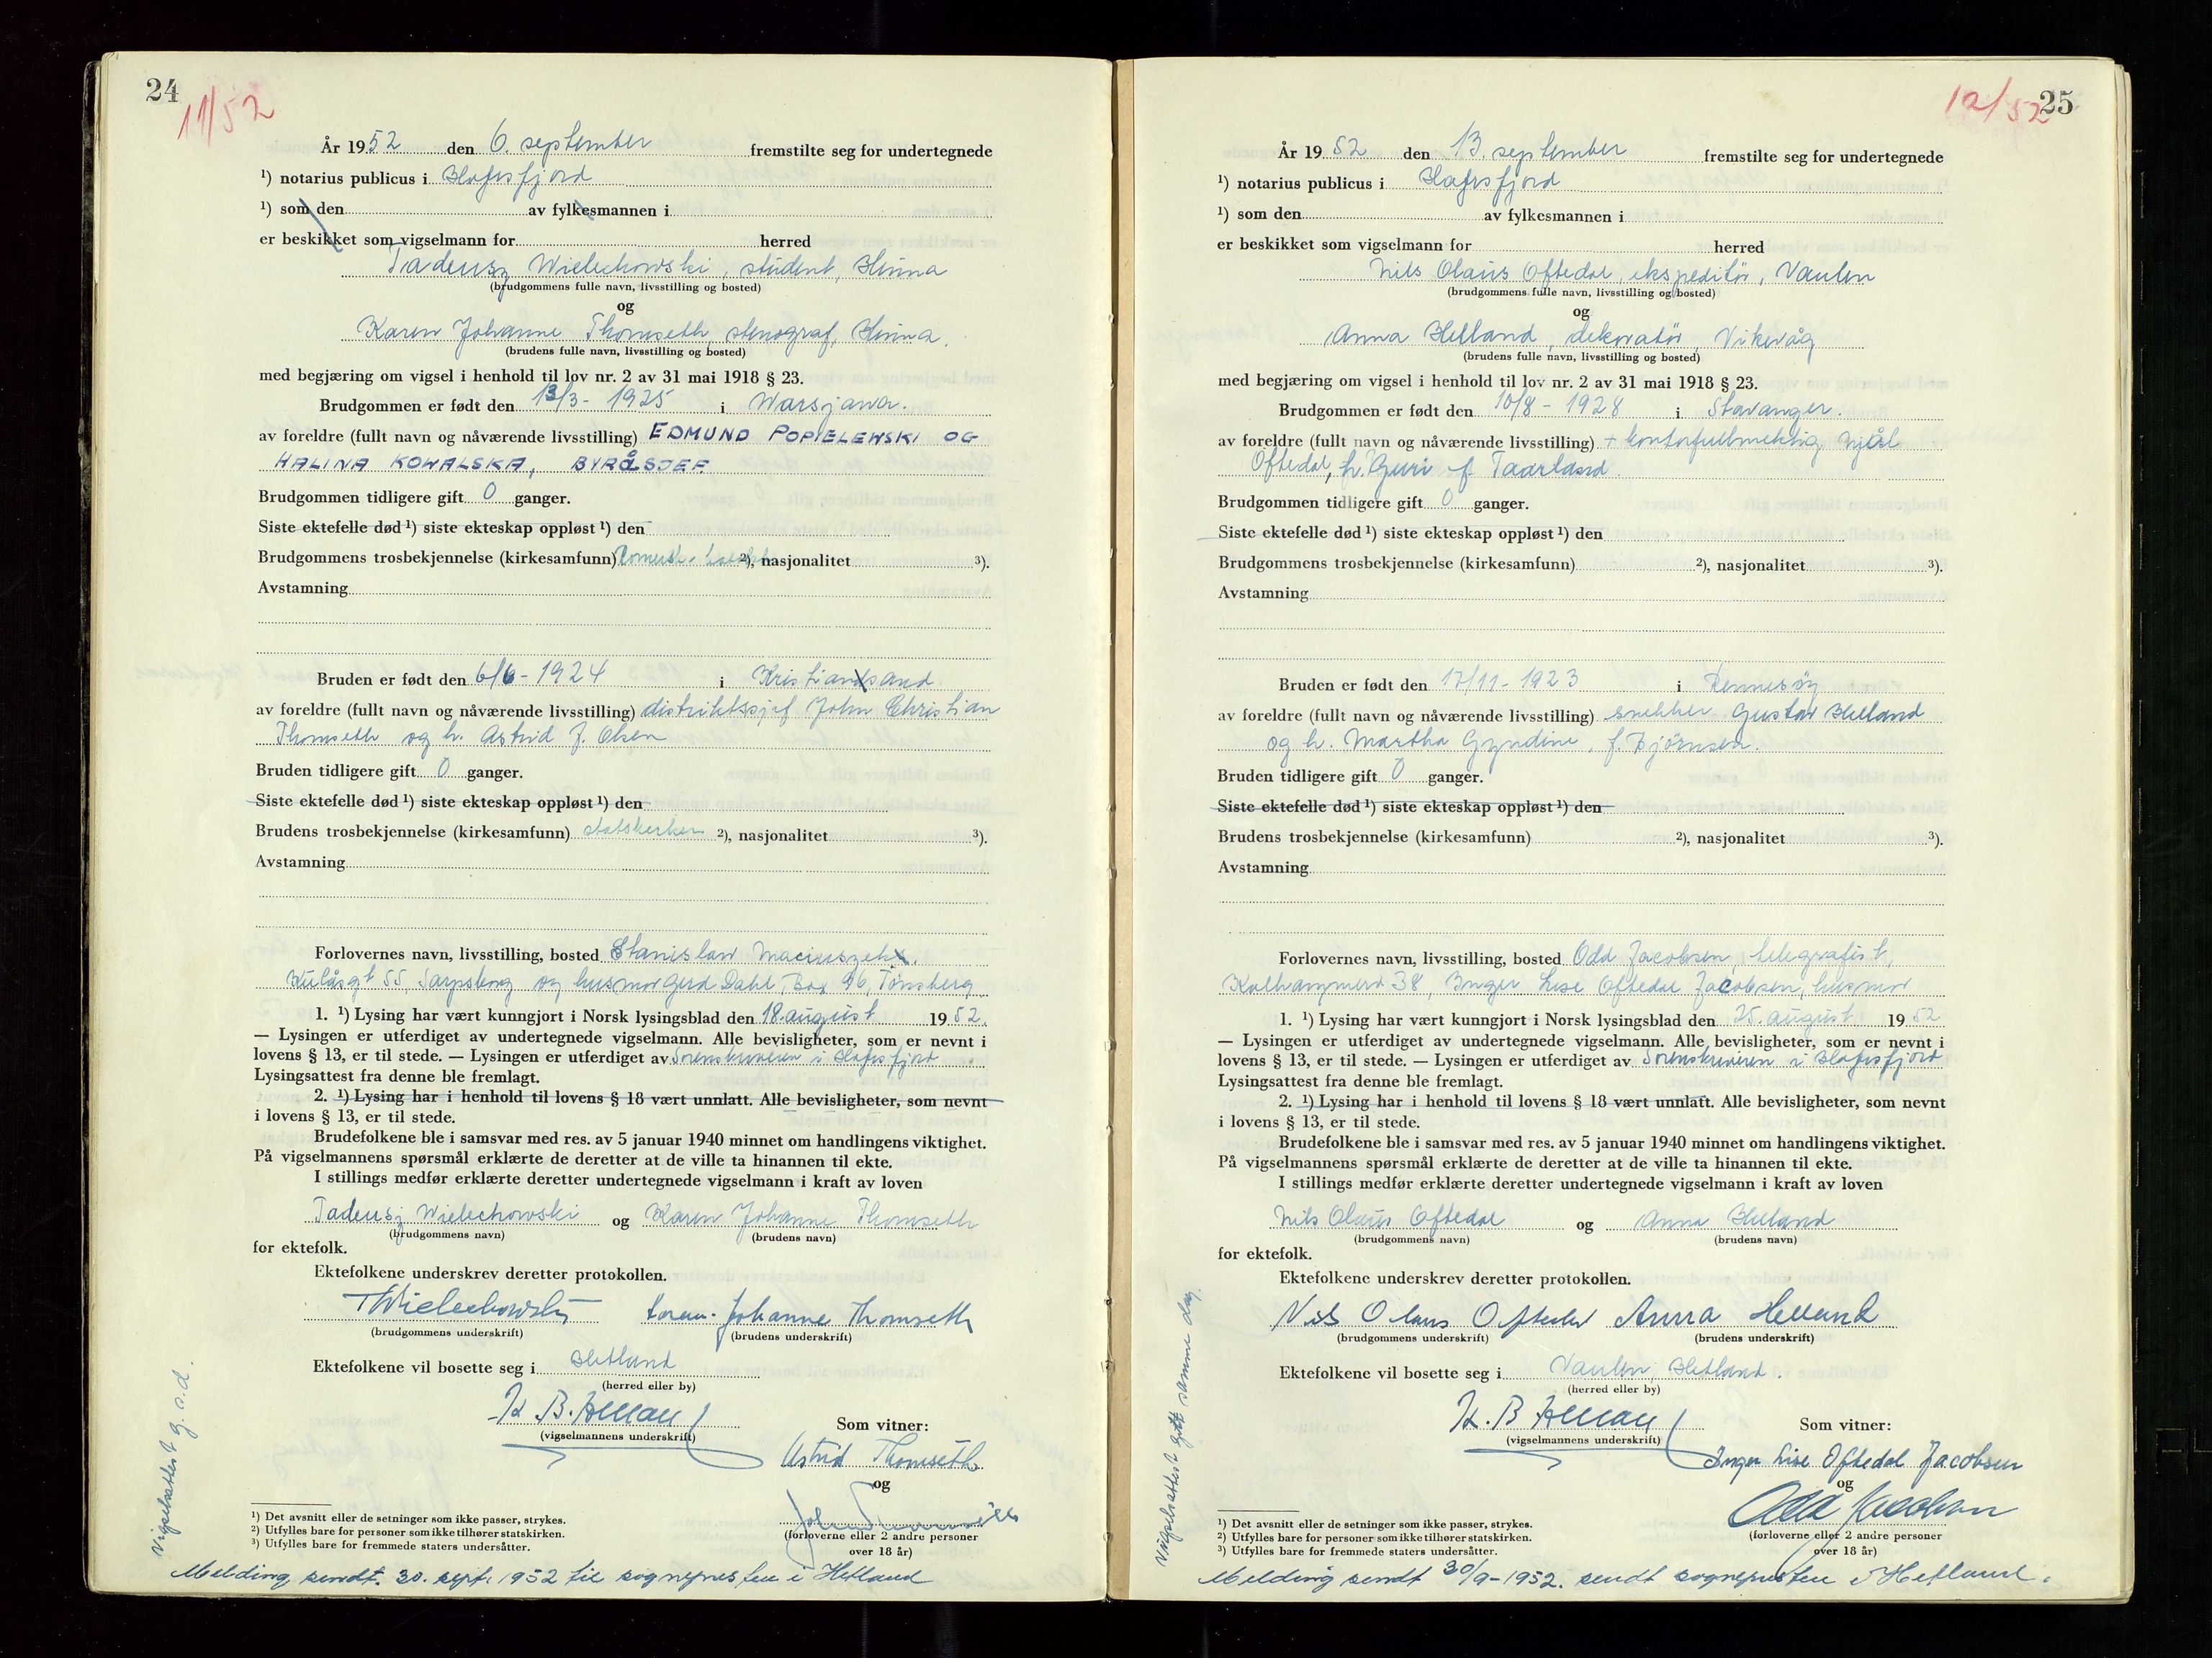 24
11/52
År 1952 den 6. september fremstilte seg for undertegnede
¹) notarius publicus i Hafrsfjord
¹) som den av fylkesmannen i
er beskikket som vigselmann for herred
Tadeusz Wielechowski, student, Hinna
(brudgommens fulle navn, livsstilling og bosted)
og
Karen Johanne Thomseth, stenograf, Hinna.
(brudens fulle navn, livsstilling og bosted)
med begjæring om vigsel i henhold til lov nr. 2 av 31 mai 1918 § 23.
Brudgommen er født den 13/3 - 1925 i Warsjawa.
av foreldre (fullt navn og nåværende livsstilling) EDMUND POPIELEWSKI OG
HALINA KOWALSKA, BYRÅSJEF
Brudgommen tidligere gift 0 ganger.
Siste ektefelle død ¹) siste ekteskap oppløst ¹) den
Brudgommens trosbekjennelse (kirkesamfunn) ²), nasjonalitet ³).
Avstamning
Bruden er født den 6/6 - 1924 i Kristiansand
av foreldre (fullt navn og nåværende livsstilling) distriktssjef John Christian
Thomseth og h. Astrid f. Olsen
Bruden tidligere gift 0 ganger.
Siste ektefelle død ¹) siste ekteskap oppløst ¹) den
Brudens trosbekjennelse (kirkesamfunn) statskirken ²), nasjonalitet ³).
Avstamning
Forlovernes navn, livsstilling, bosted Stanislaw
55, Sarpsborg og husmor Gerd Dahl, Box 96, Tønsberg
1. ¹) Lysing har vært kunngjort i Norsk lysingsblad den 18. august 1952.
— Lysingen er utferdiget av undertegnede vigselmann. Alle bevisligheter, som er nevnt i
lovens § 13, er til stede. — Lysingen er utferdiget av Sorenskriveren i Hafrsfjord.
Lysingsattest fra denne ble fremlagt.
2. ¹) Lysing har i henhold til lovens § 18 vært unnlatt. Alle bevisligheter, som nevnt
i lovens § 13, er til stede.
Brudefolkene ble i samsvar med res. av 5 januar 1940 minnet om handlingens viktighet.
På vigselmannens spørsmål erklærte de deretter at de ville ta hinannen til ekte.
I stillings medfør erklærte deretter undertegnede vigselmann i kraft av loven
Tadeusz Wielechowski og Karen Johanne Thomseth
(brudgommens navn) (brudens navn)
for ektefolk.
Ektefolkene underskrev deretter protokollen.
TWielechowski Karen-Johanne Thomseth
(brudgommens underskrift) (brudens underskrift)
Ektefolkene vil bosette seg i Hetland
(herred eller by)
K. B.
(vigselmannens underskrift)
Som vitner:
Astrid Thomseth
og
(forloverne eller 2 andre personer
over 18 år)
¹) Det avsnitt eller de setninger som ikke passer, strykes.
²) Utfylles bare for personer som ikke tilhører statskirken.
³) Utfylles bare for fremmede staters undersåtter.
Vigselsattest g. s. d.
Melding sendt. 30. sept. 1952 til sognepresten i Hetland
25
12/52
År 1952 den 13. september fremstilte seg for undertegnede
¹) notarius publicus i Hafrsfjord
¹) som den av fylkesmannen i
er beskikket som vigselmann for herred
Nils Olaus Oftedal, ekspeditør, Vaulen
(brudgommens fulle navn, livsstilling og bosted)
og
Anna Helland, dekoratør, Vikevåg
(brudens fulle navn, livsstilling og bosted)
med begjæring om vigsel i henhold til lov nr. 2 av 31 mai 1918 § 23.
Brudgommen er født den 10/8 - 1928 i Stavanger.
av foreldre (fullt navn og nåværende livsstilling) + kontorfullmektig Njål
Oftedal, h. Guri f. Taarland.
Brudgommen tidligere gift 0 ganger.
Siste ektefelle død ¹) siste ekteskap oppløst ¹) den
Brudgommens trosbekjennelse (kirkesamfunn) ²), nasjonalitet ³).
Avstamning
Bruden er født den 17/11 - 1923 i Rennesøy
av foreldre (fullt navn og nåværende livsstilling) snekker Gustav Helland
og h. Martha Gyndine, f. Bjørnsen.
Bruden tidligere gift 0 ganger.
Siste ektefelle død ¹) siste ekteskap oppløst ¹) den
Brudens trosbekjennelse (kirkesamfunn) ²), nasjonalitet ³).
Avstamning
Forlovernes navn, livsstilling, bosted Odd Jacobsen, telegrafist,
38, Inger Lise Oftedal Jacobsen, husmor
1. ¹) Lysing har vært kunngjort i Norsk lysingsblad den 25. august 1952
— Lysingen er utferdiget av undertegnede vigselmann. Alle bevisligheter, som er nevnt i
lovens § 13, er til stede. — Lysingen er utferdiget av Sorenskriveren i Hafrsfjord
Lysingsattest fra denne ble fremlagt.
2. ¹) Lysing har i henhold til lovens § 18 vært unnlatt. Alle bevisligheter, som nevnt
i lovens § 13, er til stede.
Brudefolkene ble i samsvar med res. av 5 januar 1940 minnet om handlingens viktighet.
På vigselmannens spørsmål erklærte de deretter at de ville ta hinannen til ekte.
I stillings medfør erklærte deretter undertegnede vigselmann i kraft av loven
Nils Olaus Oftedal og Anna Helland
(brudgommens navn) (brudens navn)
for ektefolk.
Ektefolkene underskrev deretter protokollen.
Nils Olaus Oftedal Anna Helland
(brudgommens underskrift) (brudens underskrift)
Ektefolkene vil bosette seg i Vaulen, Hetland.
(herred eller by)
K. B.
(vigselmannens underskrift)
Som vitner:
Inger Lise Oftedal Jacobsen
og
Odd Jacobsen
(forloverne eller 2 andre personer
over 18 år)
¹) Det avsnitt eller de setninger som ikke passer, strykes.
²) Utfylles bare for personer som ikke tilhører statskirken.
³) Utfylles bare for fremmede staters undersåtter.
Vigselsattest gitt samme dag.
Melding sendt 30/9-1952. sendt sognepresten i Hetland.